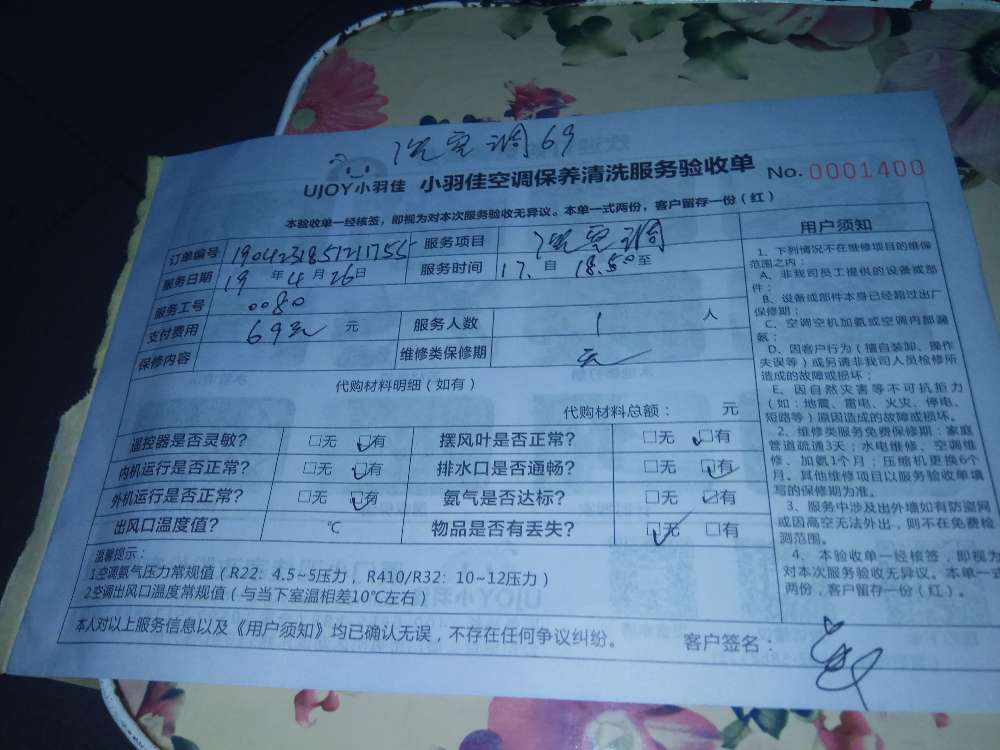 洗空调69
UJOY小羽佳 小羽佳空调保养清洗服务验收单 No. 0001400
本验收单一经核签，即视为对本次服务验收无异议。本单一式两份，客户留存一份（红）
订单编号 190423185121755 服务项目 洗空调
服务日期 19 年 4 月 26 日 服务时间 17. 自 18.50 至
服务工号 0080
支付费用 69元 元 服务人数 1 人
保修内容 维修类保修期 无
代购材料明细（如有）
代购材料总额： 元
遥控器是否灵敏？ □无 □有 摆风叶是否正常？ □无 □有
内机运行是否正常？ □无 □有 排水口是否通畅？ □无 □有
外机运行是否正常？ □无 □有 氨气是否达标？ □无 □有
出风口温度值？ ℃ 物品是否有丢失？ □无 □有
温馨提示：
1.空调氨气压力常规值（R22：4.5~5压力，R410/R32：10~12压力）
2.空调出风口温度常规值（与当下室温相差10℃左右）
本人对以上服务信息以及《用户须知》均已确认无误，不存在任何争议纠纷。 客户签名：
用户须知
1、下列情况不在维修项目的维保
范围之内：
A、非我司员工提供的设备或部
件；
B、设备或部件本身已经超过出厂
保修期；
C、空调空机加氨或空调内部漏
氨；
D、因客户行为（擅自装卸、操作
失误等）或另请非我司人员检修所
造成的故障或损坏；
E、因自然灾害等不可抗拒力
（如：地震、雷电、火灾、停电、
短路等）原因造成的故障或损坏。
2、维修类服务免费保修期：家庭
管道疏通3天；水电维修、空调维
修、加氨1个月；压缩机更换6个
月。其他维修项目以服务验收单填
写的保修期为准。
3、服务中涉及出外墙如有防盗网
或因高空无法外出，则不在免费检
测范围。
4、本验收单一经核签，即视为
对本次服务验收无异议。本单一式
两份，客户留存一份（红）。